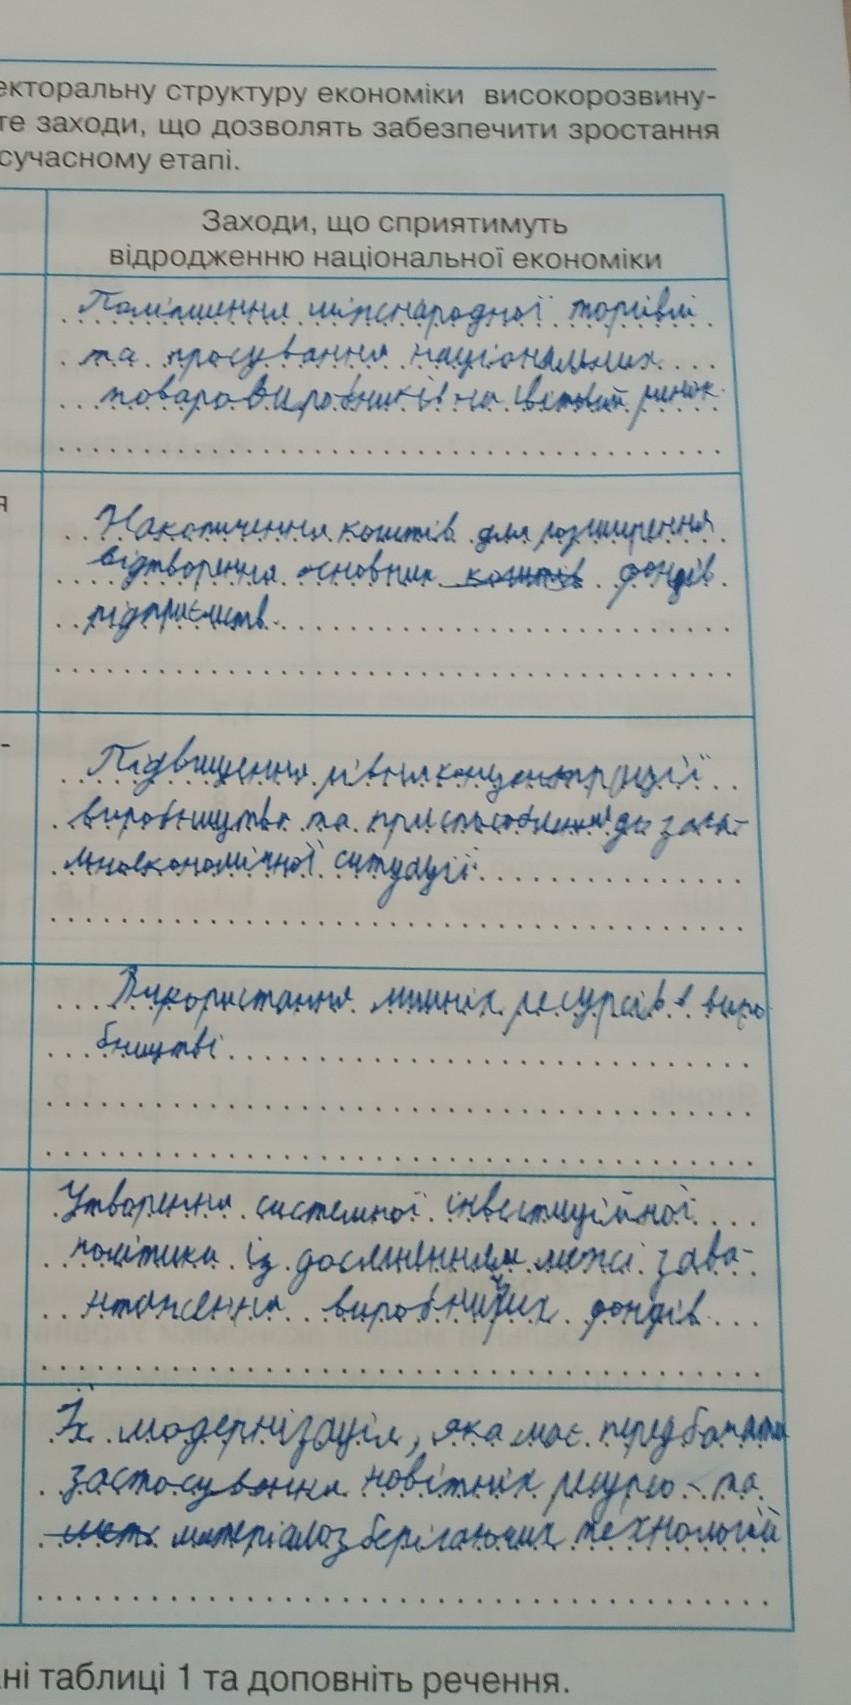 екторальну структуру економіки високорозвину-
те заходи, що дозволять забезпечити зростання
сучасному етапі.
Заходи, що сприятимуть
відродженню національної економіки
Поліпшення міжнародної торівлі
та просування національних
товаровиробників на світовий ринок
я
Накопичення коштів для розширення
відтворення основних коштів фондів
підприємств.
-
Підвищення рівня концентрації
виробництва та до загаль-
ноекономічної ситуації
Використання ресурсів в виро-
бництві
Утворення системної інвестиційної
політики із досягненням межі зава-
нтаження виробничих фондів
Їх модернізація, яка має передбачати
застосування новітніх ресурсо- та
матеріалозберігаючих технологій
ні таблиці 1 та доповніть речення.